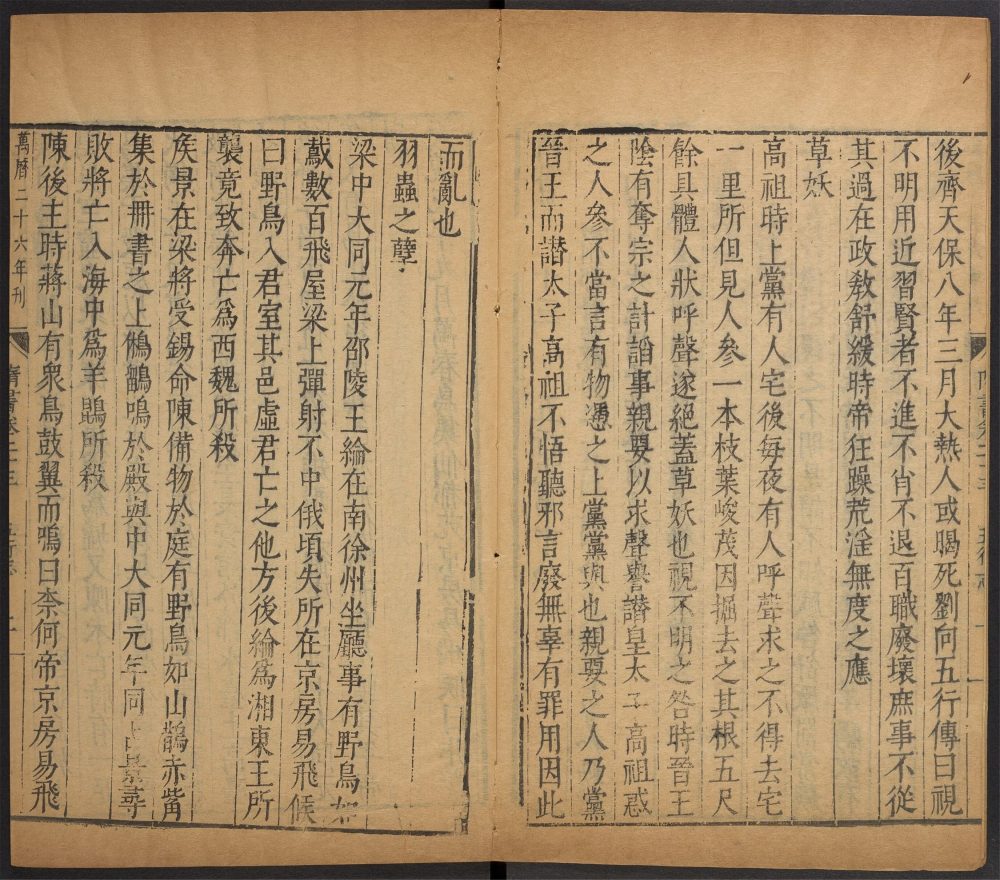 後齊天保八年三月大熱人或暍死劉向五行傳曰視
不明用近習賢者不進不肖不退百職廢壞庶事不從
其過在政教舒緩時帝狂躁荒淫無度之應
草妖
高祖時上黨有人宅後每夜有人呼聲求之不得去宅
一里所但見人參一本枝葉峻茂因掘去之其根五尺
餘具體人狀呼聲遂絕蓋草妖也視不明之咎時晉王
陰有奪宗之計諂事親要以求聲譽譖皇太子高祖惑
之人參不當言有物憑之上黨黨與也親要之人乃黨
晉王而譖太子高祖不悟聽邪言廢無辜有罪用因此
而亂也
羽蟲之孽
梁中大同元年邵陵王綸在南徐州坐廳事有野鳥如
鳶數百飛屋梁上彈射不中俄頃失所在京房易飛候
曰野鳥入君室其邑虛君亡之他方後綸為湘東王所
襲竟致奔亡為西魏所殺
侯景在梁將受錫命陳備物於庭有野鳥如山鵲赤觜
集於冊書之上鵂鶹鳴於殿與中大同元年同占景尋
敗將亡入海中為羊鵾所殺
陳後主時蔣山有眾鳥鼓翼而鳴曰柰何帝京房易飛
萬曆二十六年刊
隋書卷二十三 五行志 二